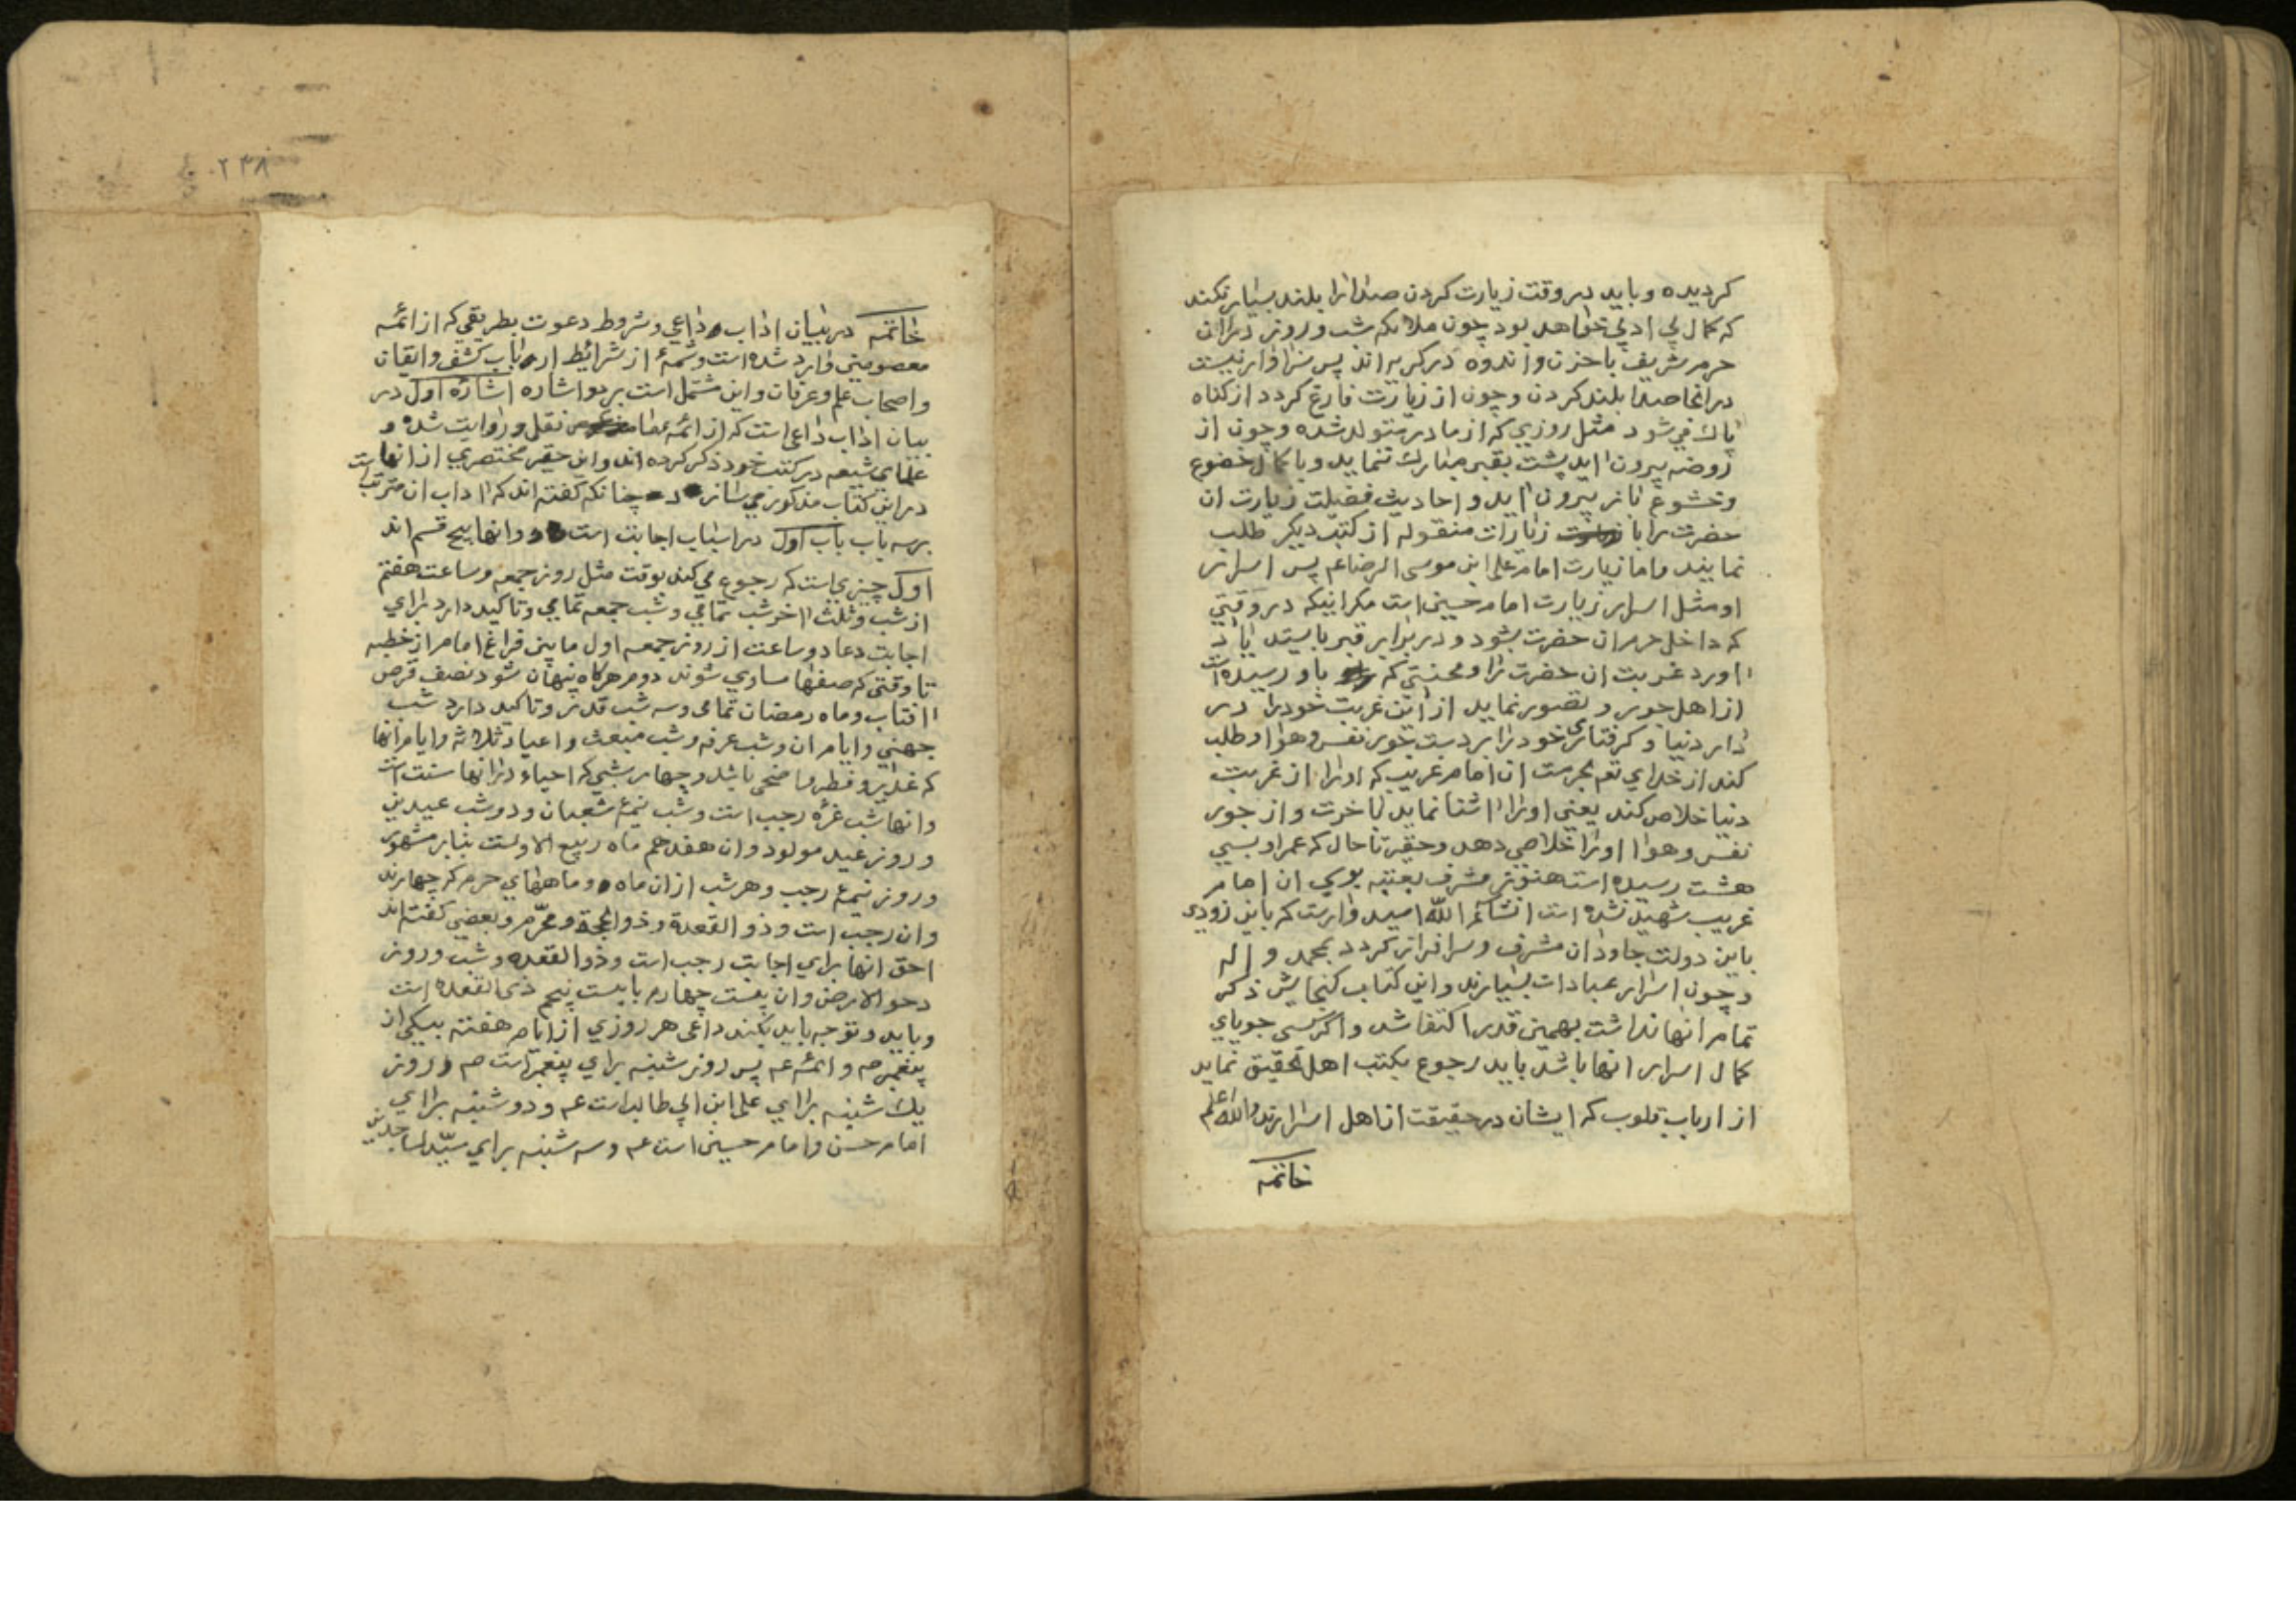 كرديده و بايد در وقت زيارت كردن صدا را بلند بسيار نكند
كه كمال بي ادبي خواهد بود چون ملائكه شب و روز در ان
حرم شريف با حزن و اندوه در كريه اند پس سزاوار نيست
در انجا صدا بلند كردن و چون از زيارت فارغ كردد از كناه
پاك مي شود مثل روزي كه از مادر متولد شده و چون از
روضه بيرون ايد پشت بقبر مبارك ننمايد و با كمال خضوع
و خشوع باز بيرون ايد و احاديث فضيلت زيارت ان
حضرت را با زيارات منقوله از كتب ديكر طلب
نمايند و اما زيارت امام علي ابن موسى الرضا عم پس اسرار
او مثل اسرار زيارت امام حسين است مكر انيكه در وقتي
كه داخل حرم ان حضرت بشود و در برابر قبر بايستد ياد
اورد غربت ان حضرت را و محنتي كه باو رسيده است
از اهل جور و تصور نمايد از اين غربت خود را در
دار دنيا و كرفتاري خود را بر دست جور نفس و هوا و طلب
كند از خداي تعم بحرمت ان امام غريب كه او را از غربت
دنيا خلاص كند يعني او را اشنا نمايد باخرت و از جور
نفس و هوا او را خلاصي دهد و حقير تا حال كه عمر او بسي
هشت رسيده است هنوز مشرف بعتبه بوسي ان امام
غريب شهيد نشده است انشاء الله اميدوار است كه باين زودي
باين دولت جاودان مشرف و سرافراز كردد بمحمد و اله
و چون اسرار عبادات بسيارند و اين كتاب كنجايش ذكر
تمام انها نداشت بهمين قدر اكتفا شد و اكر كسي جوياي
كمال اسرار انها باشد بايد رجوع بكتب اهل تحقيق نمايد
از ارباب قلوب كه ايشان در حقيقت از اهل اسرارند والله اعلم
خاتمه
٢٣٨
خاتمه در بيان اداب داعي و شروط دعوت بطريقي كه از ائمه
معصومين وارد شده است و شمهٔ از شرائيط ارباب كشف و ايقان
و اصحاب علم و عرفان و اين مشتمل است بر دو اشاره اشاره اول در
بيان اداب داعي است كه از ائمه عظام نقل و روايت شده و
علماي شيعه در كتب خود ذكر كرده اند و اين حقير مختصري از انها
در اين كتاب مذكور مي سازد چنانكه كفته اند كه اداب ان مترتب است
بر سه باب باب اول در اسباب اجابت است و انها پنج قسم اند
اول چيزي است كه رجوع مي كند بوقت مثل روز جمعه و ساعت هفتم
از شب و ثلث اخر شب تمامي و شب جمعه تمامي و تاكيد دارد براي
اجابت دعا دو ساعت از روز جمعه اول ما بين فراغ امام از خطبه
تا وقتي كه صفها مساوي شوند دوم هركاه پنهان شود نصف قرص
افتاب و ماه رمضان تمامي و سه شب قدر و تاكيد دارد شب
جهني و ايام ان و شب عرفه و شب مبعث و اعياد ثلاثه و ايام انها
كه غدير و فطر و اضحى باشد و چهار شبي كه احياء در انها سنت است
و انها شب غرّه رجب است و شب نيمهٔ شعبان و دو شب عيدين
و روز عيد مولود و ان هفدهم ماه ربيع الاول است بنابر مشهور
و روز نيمهٔ رجب و هر شب از ان ماه و ماههاي حرم كه چهارند
و ان رجب است و ذو القعدة و ذو الحجة و محرّم و بعضي كفته اند
احق انها براي اجابت رجب است و ذو القعده و شب و روز
دحو الارض و ان بيست چهارم يا بيست پنجم ذي القعده است
و بايد و توجه بايد بكند داعي هر روزي از ايام هفته بيكي از
پيغمبر صم و ائمه عم پس روز شنبه براي پيغمبر است صم و روز
يك شنبه براي علي ابن ابي طالب است عم و دو شنبه براي
امام حسن و امام حسين است عم و سه شنبه براي سيّد الساجدين